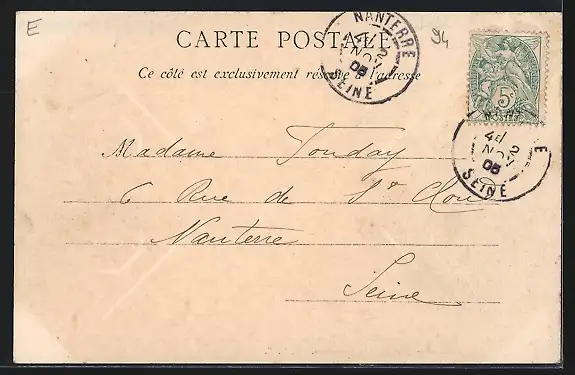 E
94
CARTE POSTALE
Ce côté est exclusivement réservé à l'adresse
NANTERRE
4E / 2
NOV
05
SEINE
5c
POSTES
4E / 2
NOV
05
SEINE
Madame Jouday
6 Rue de St Clou
Nanterre
Seine